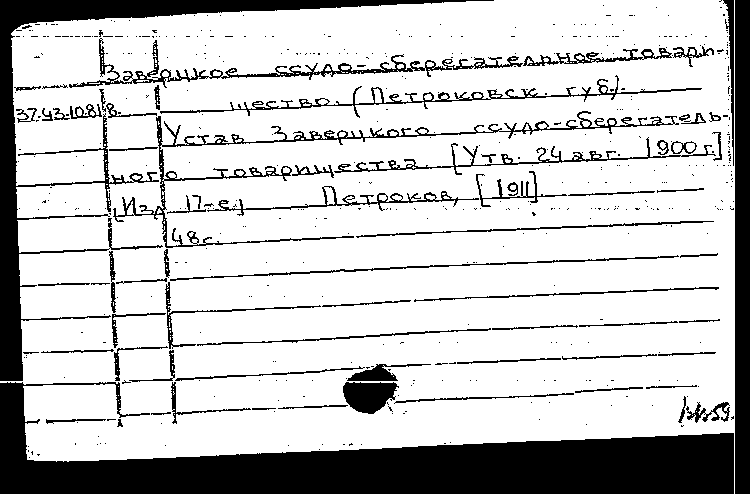 Заверцкое ссудо-сберегательное товари-
37.43.1081 8. щество. (Петроковск. губ.).
Устав Заверцкого ссудо-сберегатель-
ного товарищества. [Утв. 24 авг. 1900 г.]
[Изд 17-е] Петроков, [1911].
48 с.